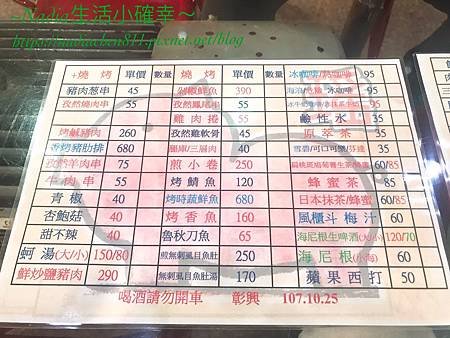 ~Nadia生活小確幸~
https://nadiachen811.pixnet.net/blog
+燒 烤 單價 數量 燒 烤 單價 數量 冰咖啡/熱咖啡 95
豬肉蔥串 45 剝椒鮮魚 390 95
孜然燒肉串 55 孜然鳳尾串 55
雞肉捲 55 鹼性水 35
烤鹹豬肉 260 孜然雞軟骨 45 原萃茶 35
香烤豬肋排 680 45 雪碧/可口可樂/芬達 35
孜然羊肉串 75 煎小卷 250 60/85
牛肉串 55 烤鯖魚 120 蜂蜜茶 85
青椒 40 烤時蔬鮮魚 680 日本抹茶/蜂蜜 60/85
杏鮑菇 40 烤香魚 160 風櫃斗梅汁 60
甜不辣 40 魯秋刀魚 65 海尼根生啤酒(大/小) 120/70
蚵湯(大/小) 150/80 煎無刺虱目魚肚 250 海尼根(小海) 60
鮮炒鹽豬肉 290 無刺虱目魚肚湯 170 蘋果西打 50
喝酒請勿開車 彰興 107.10.25